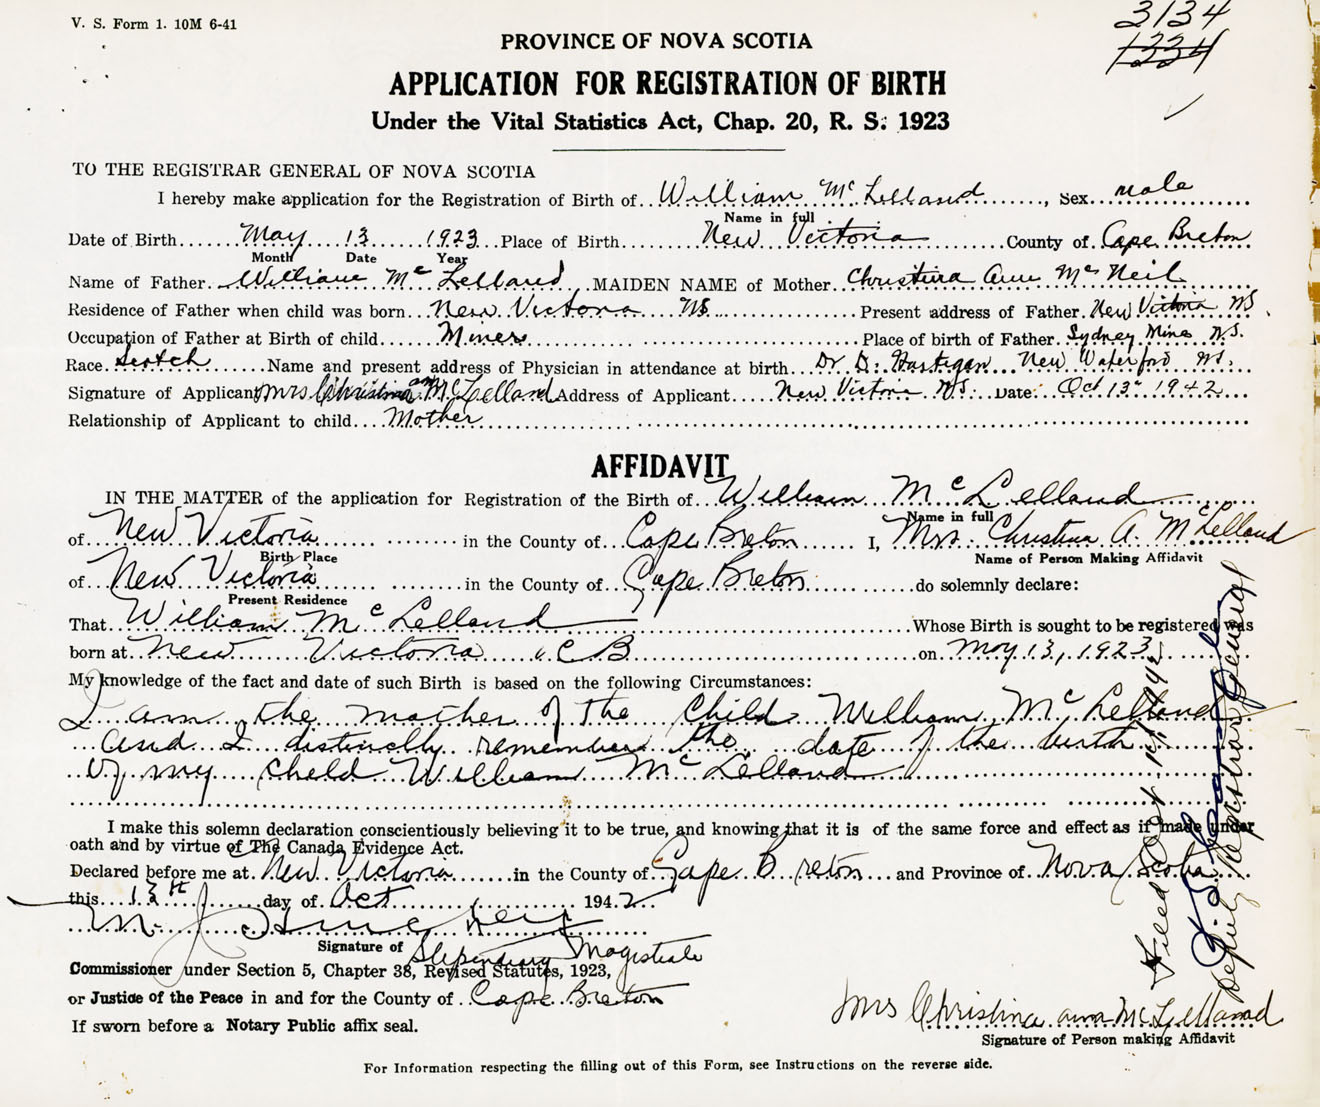 V. S. Form 1. 10M 6-41
3134
1334
PROVINCE OF NOVA SCOTIA
APPLICATION FOR REGISTRATION OF BIRTH
Under the Vital Statistics Act, Chap. 20, R. S. 1923
TO THE REGISTRAR GENERAL OF NOVA SCOTIA
I hereby make application for the Registration of Birth of William McLelland, Sex male
Name in full
Date of Birth May 13 1923 Place of Birth New Victoria County of Cape Breton
Month Date Year
Name of Father William McLelland MAIDEN NAME of Mother Christina Ann McNeil
Residence of Father when child was born New Victoria NS Present address of Father New Victoria NS
Occupation of Father at Birth of child Miner Place of birth of Father Sydney Mines N.S.
Race Scotch Name and present address of Physician in attendance at birth Dr D. Hartigan New Waterford NS.
Signature of Applicant Mrs Christina ann McLelland Address of Applicant New Victoria N.S. Date Oct 13 1942
Relationship of Applicant to child Mother
AFFIDAVIT
IN THE MATTER of the application for Registration of the Birth of William McLelland
Name in full
of New Victoria in the County of Cape Breton I, Mrs. Christina A. McLelland
Birth Place Name of Person Making Affidavit
of New Victoria in the County of Cape Breton do solemnly declare:
Present Residence
That William McLelland Whose Birth is sought to be registered was
born at New Victoria C B on May 13, 1923
My knowledge of the fact and date of such Birth is based on the following Circumstances:
I am the mother of the child William McLelland
and I distinctly remember the date of the birth
of my child William McLelland
I make this solemn declaration conscientiously believing it to be true, and knowing that it is of the same force and effect as if made under
oath and by virtue of The Canada Evidence Act.
Declared before me at New Victoria in the County of Cape Breton and Province of Nova Scotia
this 13th day of Oct 1942
Signature of Stipendiary Magistrate
Commissioner under Section 5, Chapter 38, Revised Statutes, 1923,
or Justice of the Peace in and for the County of Cape Breton
If sworn before a Notary Public affix seal.
Mrs Christina ann McLelland
Signature of Person making Affidavit
For Information respecting the filling out of this Form, see Instructions on the reverse side.
Filed Oct 1942
Deputy Registrar General